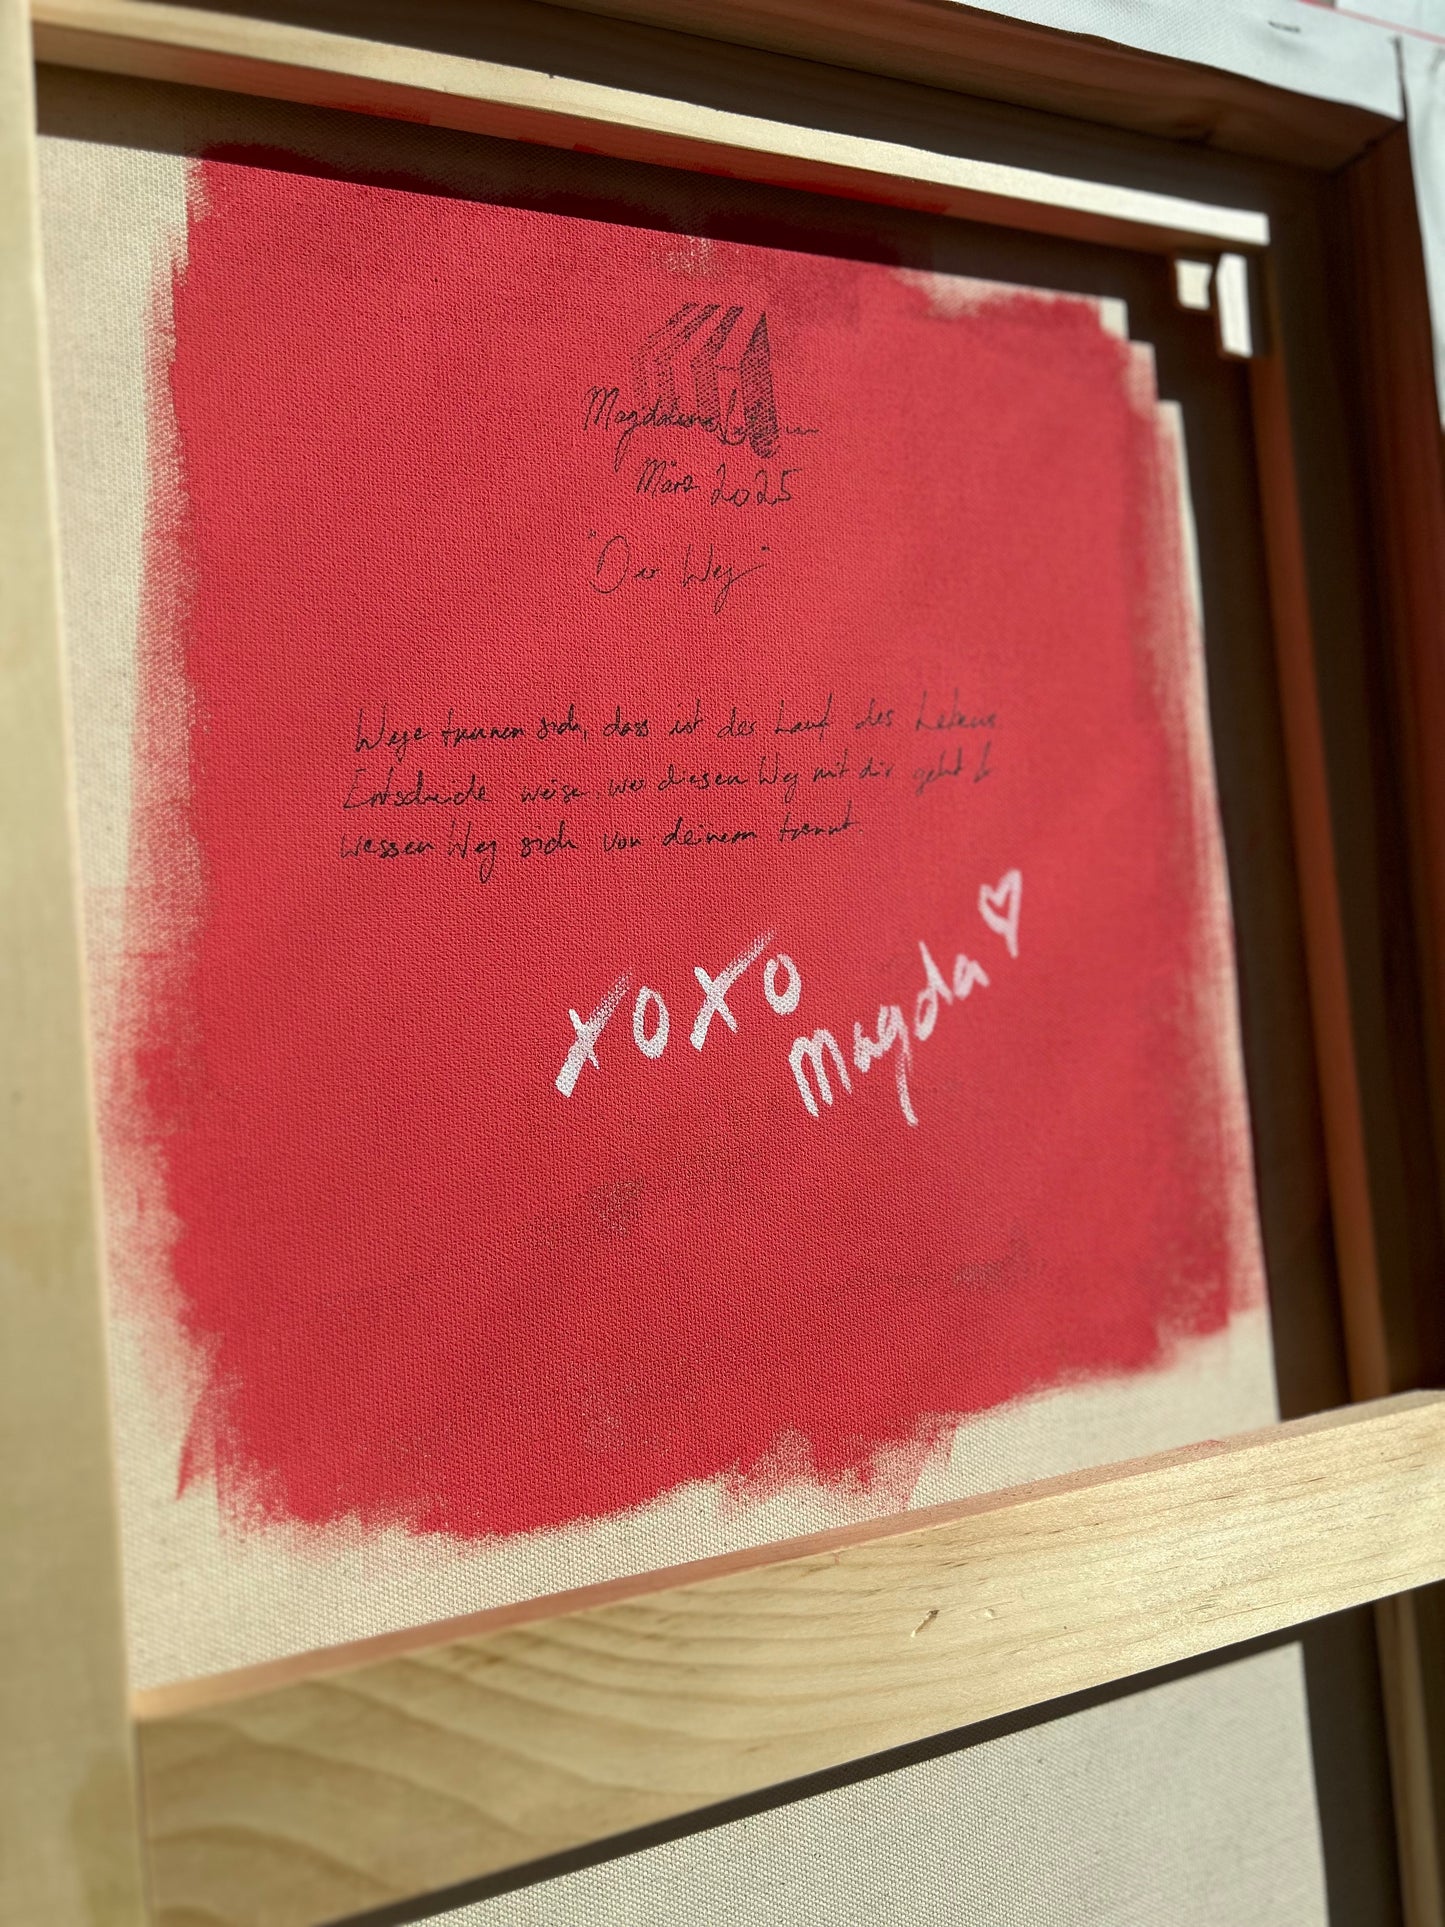 Magdalena
März 2025
"Der Weg"
Wege trennen sich, dass ist der Lauf des Lebens.
Entscheide weise wer diesen Weg mit dir geht &
wessen Weg sich von deinem trennt.
xoxo
Magda